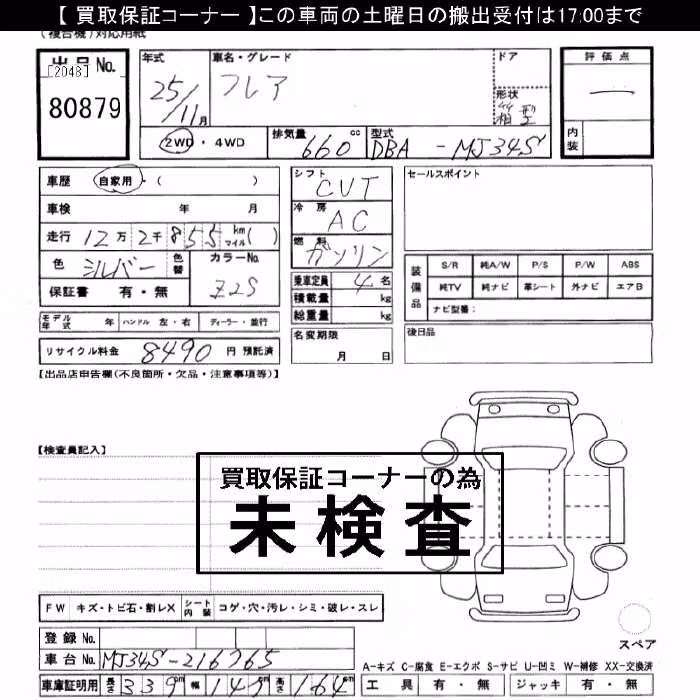 【 買取保証コーナー 】この車両の土曜日の搬出受付は17:00まで
(複合機)対応用紙
出品 No.
[2048]
80879
年式
25/11月
車名・グレード
フレア
ドア
形状
箱型
2WD・4WD
排気量 660 cc
型式 DBA - MJ34S
評価点
—
内装
車歴 自家用・( )
車検 年 月
走行 12万2千855 km マイル( )
色 シルバー 色替
カラーNo. Z2S
保証書 有・無
モデル年式 年 ハンドル 左・右 ディーラー・並行
リサイクル料金 8490 円 預託済
シフト CVT
冷房 AC
燃料 ガソリン
乗車定員 4 名
積載量 kg
総重量 kg
名変期限
月 日
セールスポイント
装備品
S/R 純A/W P/S P/W ABS
純TV 純ナビ 革シート 外ナビ エアB
ナビ型番：
後日品
【出品店申告欄(不良箇所・欠品・注意事項等)】
【検査員記入】
買取保証コーナーの為
未検査
FW キズ・トビ石・割レX シート内装 コゲ・穴・汚レ・シミ・破レ・スレ
登録 No.
車台 No. MJ34S-216765
車庫証明用 長さ 339 cm 幅 147 cm 高さ 164 cm
スペア
A-キズ C-腐食 E-エクボ S-サビ U-凹ミ W-補修 XX-交換済
工具 有・無 ジャッキ 有・無